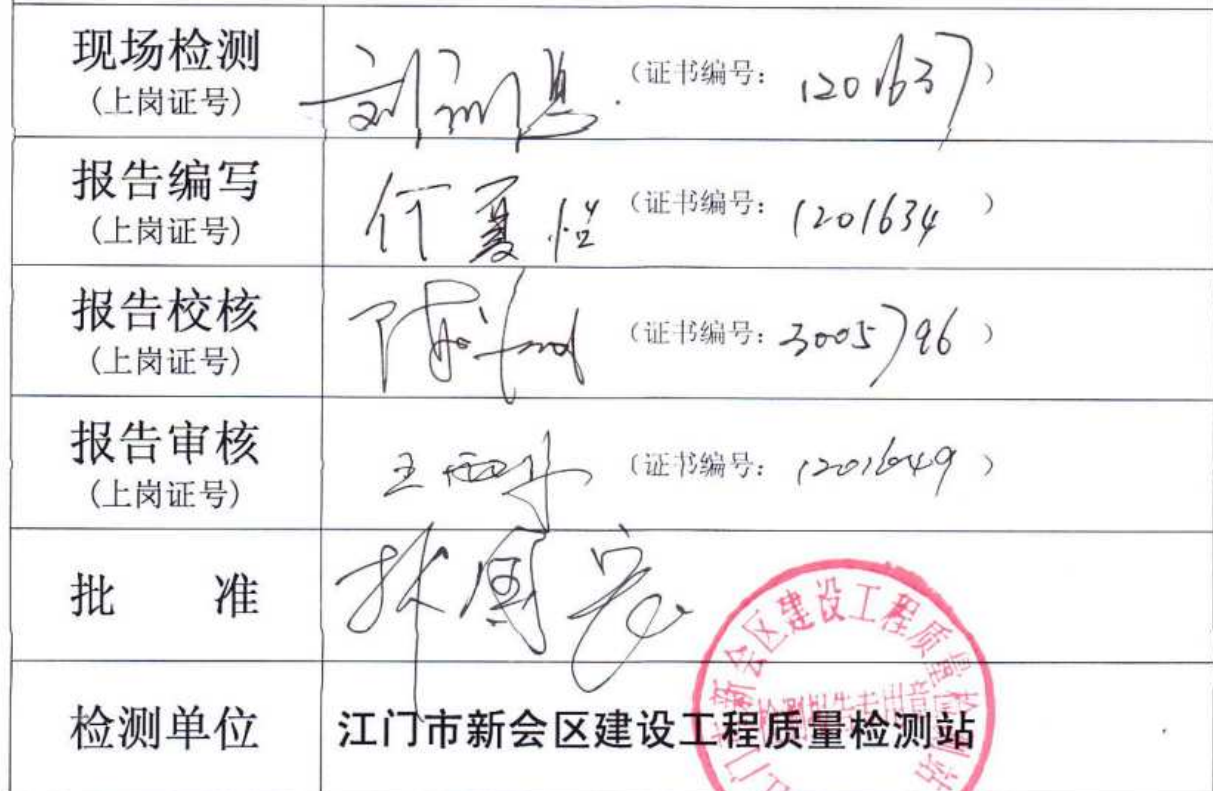 现场检测
(上岗证号)
(证书编号: 1201637)
报告编写
(上岗证号)
(证书编号: 1201634)
报告校核
(上岗证号)
(证书编号: 3005796)
报告审核
(上岗证号)
王 (证书编号: 1201649)
批 准
林国宏
检测单位
江门市新会区建设工程质量检测站
江门市新会区建设工程质量检测站
检测报告专用章